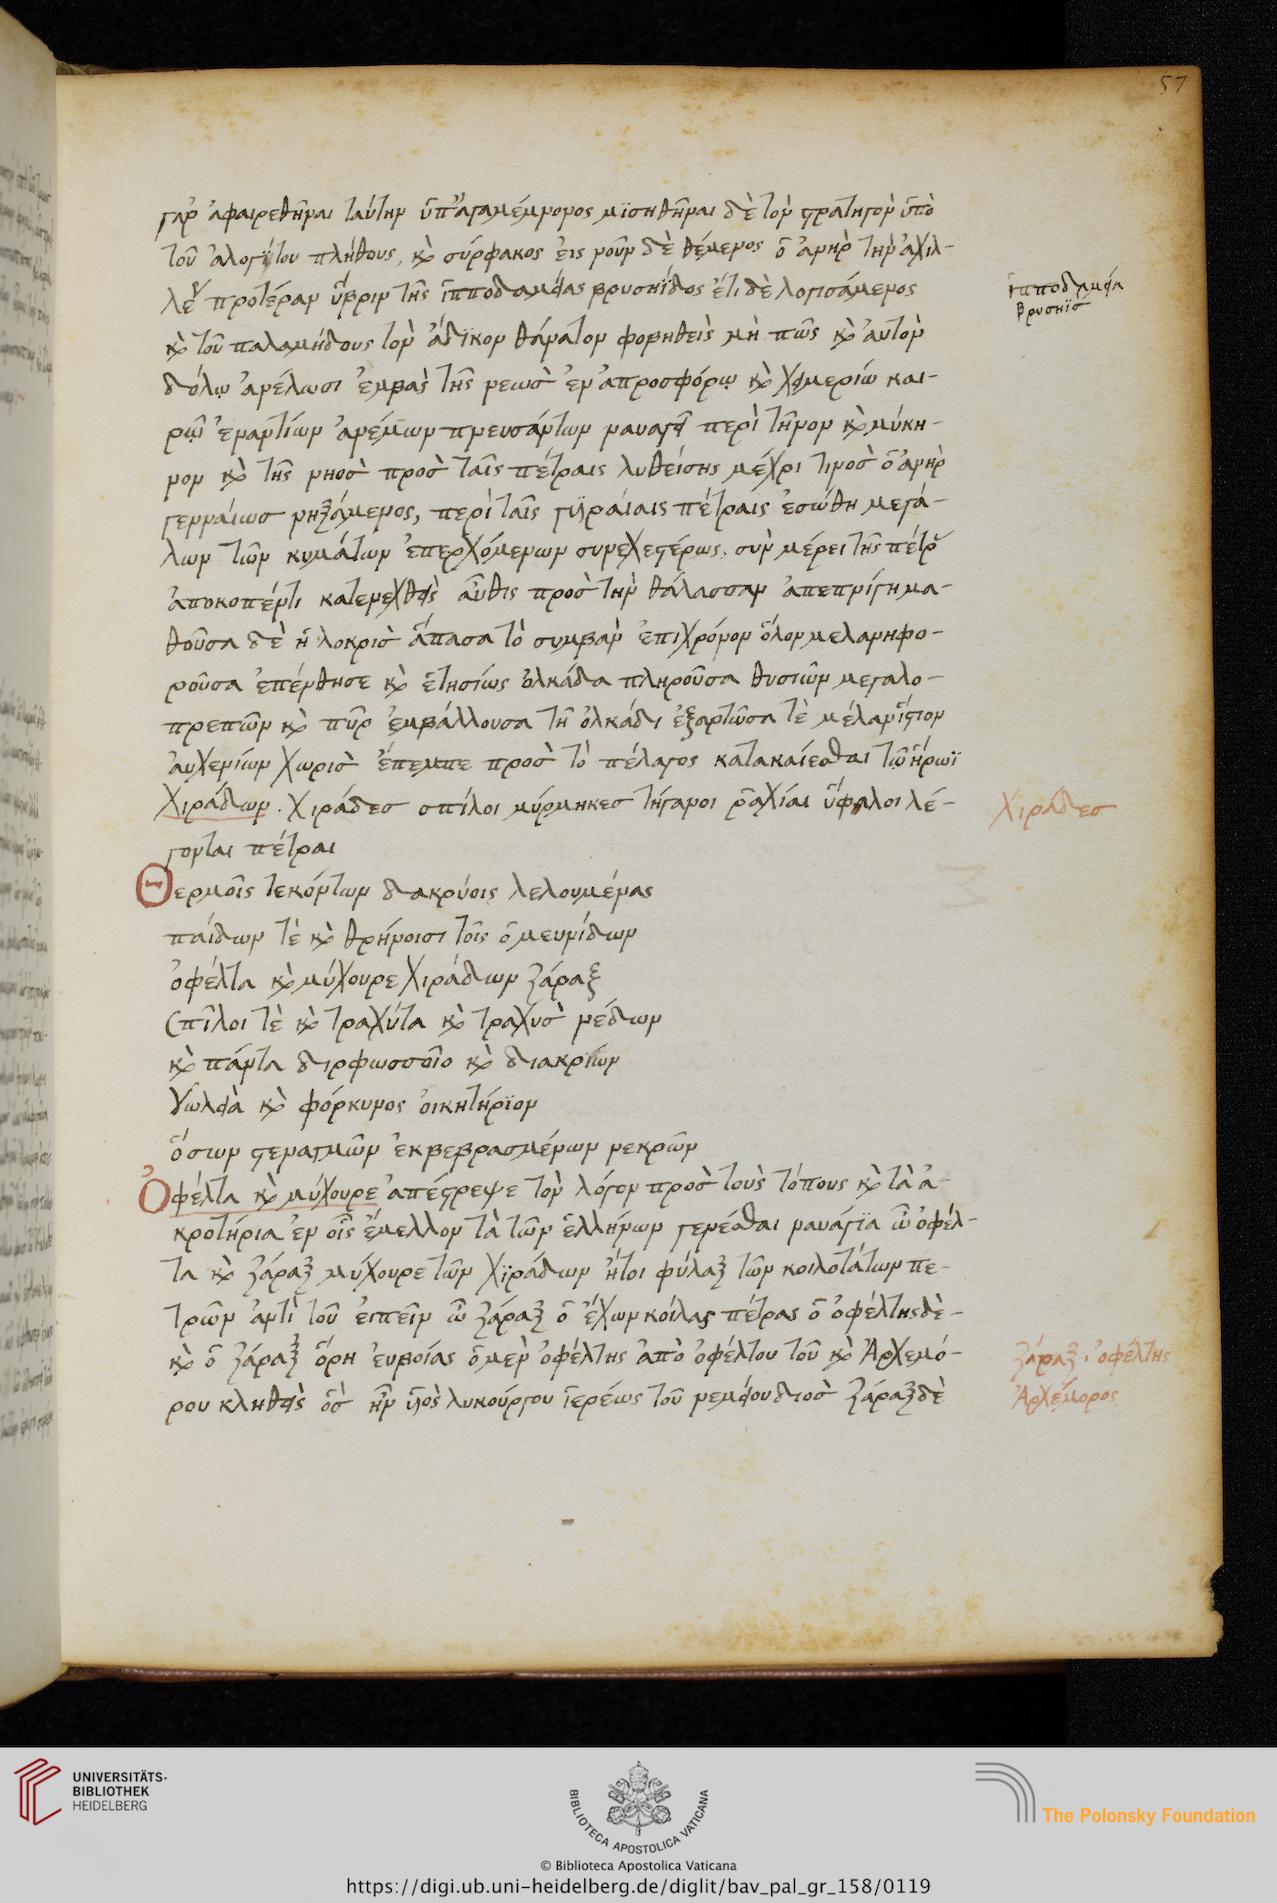 57
γὰρ ἀφαιρεθῆναι ταύτην ὑπ' ἀγαμέμνονος μϊσηθῆναι δὲ τὸν στρατηγὸν ὑπὸ
τοῦ ἀλογίστου πλήθους, κὶ σύρφακος εἰς νοῦν δὲ θέμενος ὁ ἀνὴρ τὴν ἀχιλ-
λέως προτέραν ὕβριν τῆς ἱπποδαμείας βρυσηΐδος ἔτι δὲ λογισάμενος
ἱπποδαμεία
βρυσηΐς
κὶ τοῦ παλαμήδους τὸν ἄδϊκον θάνατον φοβηθεὶς μὴ πῶς κὶ αὐτὸν
δόλῳ ἀνέλωσι ἐμβὰς τῆς νεὼσ ἐν ἀπροσφόρῳ κὶ χειμερίω και-
ρῶ ἐναντίων ἀνέμων πνευσάντων ναυαγεῖ περὶ τῆνον κὶ μύκη-
νον κὶ τῆς νηοσ πρὸσ ταῖς πέτραις λυθείσης μέχρι τινοσ ὁ ἀνὴρ
γενναίωσ νηξάμενος, περὶ ταῖς γυραίαις πέτραις ἐσώθη μεγά-
λων τῶν κυμάτων ἐπερχόμενων συνεχεστέρως, σὺν μέρει τῆς πέτρας
ἀποκοπέντι κατενεχθεὶς αὖθις πρὸσ τὴν θάλασσαν ἀπεπνίγη μα-
θοῦσα δὲ ἡ λοκρὶσ ἅπασα τὸ συμβὰν ἐπιχρόνον ὅλον μελανηφο-
ροῦσα ἐπένθησε κὶ ἐτησίως ὁλκάδα πληροῦσα θυσιῶν μεγαλο-
πρεπῶν κὶ πῦρ ἐμβάλλουσα τῇ ὁλκάδι ἐξαρτῶσα τὲ μέλαν ἱστίον
αὐχενίων χωρὶσ ἔπεμπε πρὸσ τὸ πέλαγος κατακαίεσθαι τῶ ἥρωϊ
Χιράδων. Χιράδεσ σπίλοι μύρμηκεσ τήγανοι ῥαχίαι ὕφαλοι λέ-
Χιράδεσ
γονται πέτραι
Θερμοῖς τεκόντων δακρύοις λελουμένας
παίδων τὲ κὶ θρήνοισι τοῖς ὁμευνίδων
ὀφέλτα κὶ μύχουρε χιράδων ζάραξ
Σπῖλοι τὲ κὶ τραχύτα κὶ τραχὺσ νέδων
κὶ πάντα διρφωσσοῖο κὶ διακρίων
γωλεὰ κὶ φόρκυνος οἰκητήρϊον
ὅσων στεναγμῶν ἐκβεβρασμένων νεκρῶν
Ὀφέλτα κὶ μύχουρε ἀπέστρεψε τὸν λόγον πρὸσ τοὺς τόπους κὶ τὰ ἀ-
κρωτήρια ἐν οἷς ἔμελλον τὰ τῶν ἑλλήνων γενέσθαι ναυάγϊα ὦ ὀφέλ-
τα κὶ ζάραξ μύχουρε τῶν χϊράδων ἤτοι φύλαξ τῶν κοιλοτάτων πε-
τρῶν ἀντὶ τοῦ εἰπεῖν ὦ ζάραξ ὁ ἔχων κοίλας πέτρας ὁ ὀφέλτης δὲ-
κὶ ὁ ζάραξ ὄρη εὐβοίας ὁ μὲν ὀφέλτης ἀπὸ ὀφέλτου τοῦ κὶ Ἀρχεμό-
ζάραξ · ὀφέλτης
ρου κληθεὶς ὃσ ἦν ὑιὸς λυκούργου ἱερέως τοῦ νεμείου διοσ ζάραξ δὲ
Ἀρχέμορος
UNIVERSITÄTS-
BIBLIOTHEK
HEIDELBERG
BIBLIOTECA APOSTOLICA VATICANA
The Polonsky Foundation
© Biblioteca Apostolica Vaticana
https://digi.ub.uni-heidelberg.de/diglit/bav_pal_gr_158/0119